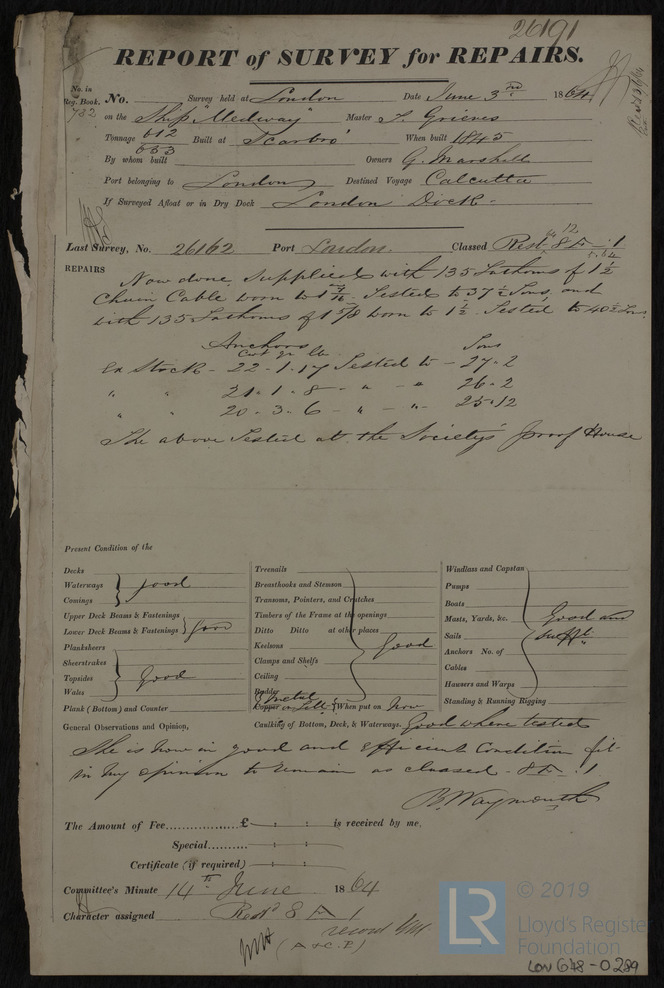 26191
REPORT of SURVEY for REPAIRS.
No. in Reg. Book, 782
No. Survey held at London Date June 3rd 1864
on the Ship "Medway" Master T. Grieves
Tonnage 612 Built at Scarbro' When built 1845
633
By whom built Owners G. Marshall
Port belonging to London Destined Voyage Calcutta
If Surveyed Afloat or in Dry Dock London Dock
Last Survey, No. 26162 Port London Classed Rest. 8
REPAIRS
Now done, Supplied with 135 Fathoms of 1 1/2
Chain Cable worn to 1 7/16. Tested to 37 1/2 Tons, and
with 135 Fathoms of 1 5/8 worn to 1 1/2. Tested to 40 1/2 Tons.
Anchors Tons
Cwt Qr lbs
Ex Stock - 22 - 1 - 17 Tested to - 27 - 2
" " 21 - 1 - 8 - " - " 26 - 2
" " 20 - 3 - 6 - " - " - 25 - 12
The above Tested at the Society's Proof House
Present Condition of the
Decks
Waterways good
Comings
Upper Deck Beams & Fastenings
Lower Deck Beams & Fastenings Good
Planksheers
Sheerstrakes
Topsides Good
Wales
Plank (Bottom) and Counter
Treenails
Breasthooks and Stemson
Transoms, Pointers, and Crutches
Timbers of the Frame at the openings
Ditto Ditto at other places
Keelsons Good
Clamps and Shelfs
Ceiling
Rudder
Y Metal
Copper or Felt When put on Now
Windlass and Capstan
Pumps
Boats
Masts, Yards, &c. Good and
Sails Sufft
Anchors No. of
Cables
Hausers and Warps
Standing & Running Rigging
General Observations and Opinion, Caulking of Bottom, Deck, & Waterways. Good where tested
She is now in good and efficient Condition fit
in my opinion to remain as classed - 1
B. Waymouth
The Amount of Fee................£ : : is received by me,
Special.......... : :
Certificate (if required) : :
Committee's Minute 14th June 1864
Character assigned Restd 8 A 1
record YM
(A & C. P.)
LR © 2019
Lloyd's Register
Foundation
LON 618-0289